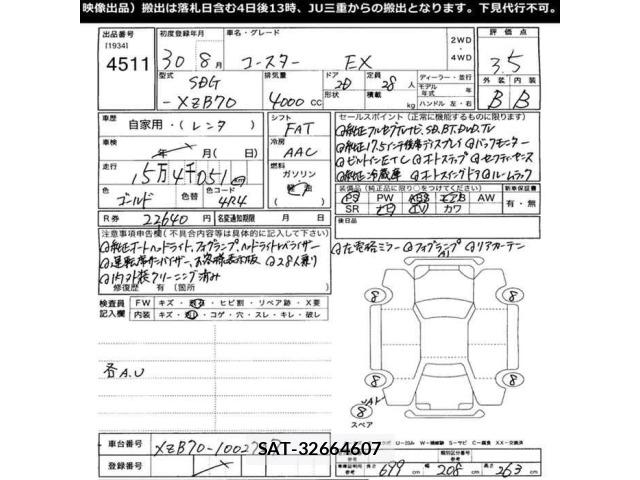 映像出品）搬出は落札日含む4日後13時、JU三重からの搬出となります。下見代行不可。
出品番号 初度登録年月 車名・グレード 2WD・4WD 評価点
[1934]
4511 30年8月 コースター EX 3.5
型式 排気量 ドア 形状 定員 積載 ディーラー・並行 外装 内装
SDG-XZB70 4000CC 2D 28人 kg モデル年式 年 ハンドル 左・右 B B
車歴 自家用・(レンタ) シフト FAT
セールスポイント（正常に機能するものに限ります）
車検 年 月(日) 冷房 AAC
純正フルセグナビ、SD、BT、DVD、TV
純正17.5インチ後席ディスプレイ バックモニター
走行 15万4千051 燃料 ガソリン・軽油
ビルトインETC オートステップ
純正冷蔵庫 オートスイングドア ルームラック
色 ゴールド 色替 色コード 4R4
装備品（純正品に限り○をつけてください） 新車保証書
PS PW ABS エアB AW 有・無
SR TV カワ
R券 22640円 名変通知期限 月 日
後日品
注意事項申告欄（不具合内容等は具体的に記入して下さい）
純正オートヘッドライト、フォグランプ、ヘッドライトレベライザー
運転席サンバイザー、28人乗り
内外装クリーニング済み
修復歴 有（箇所
電格ミラー フォグランプ リアカーテン
検査員記入欄 FW キズ・ヒビ割・リペア跡・X要
内装 キズ・コゲ・穴・スレ・キレ・破し
各A.U
8 8
8 8
8
スペア
車台番号 XZB70-10027
SAT-32664607
登録番号
車輌証明書参考 長さ 699 幅 208 高さ 263